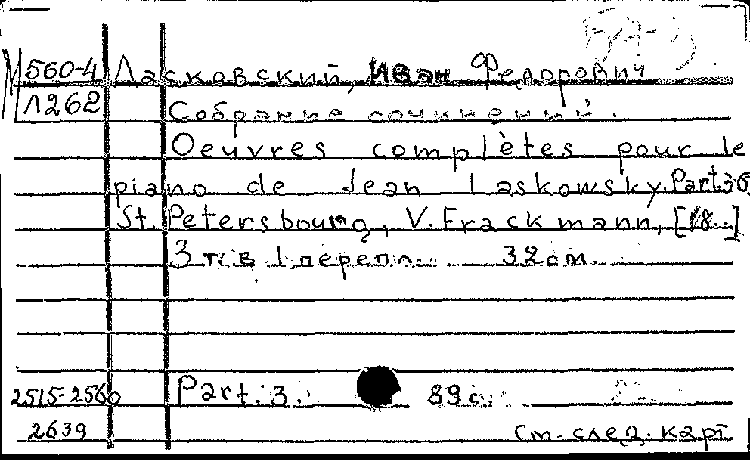 М 560-4 Ласковский, Иван Федорович
Л262 Собрание сочинений.
Oeuvres complètes pour le
piano de Jean Laskowsky. Part.3-6
St. Petersbourg, V. Frackmann, [18..]
3 т. в 1 перепл. 32 см.
2515-2560 Part. 3. 89 с.
2639 См. след. карт